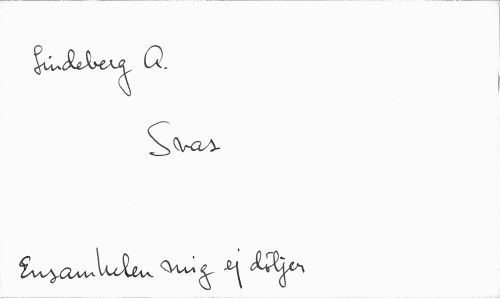 Lindeberg A.
Svas
Ensamheten mig ej döljer